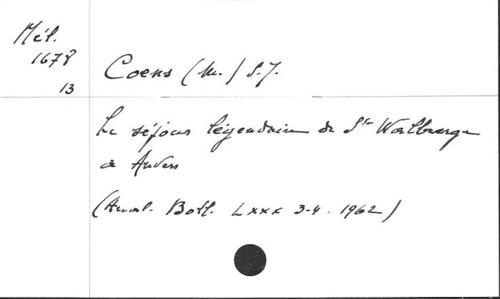 Mél.
1678
13
Coens (M.) S.J.
Le séjour légendaire de Ste Walburge
à Anvers
(Anal. Boll. LXXX 3-4. 1962)